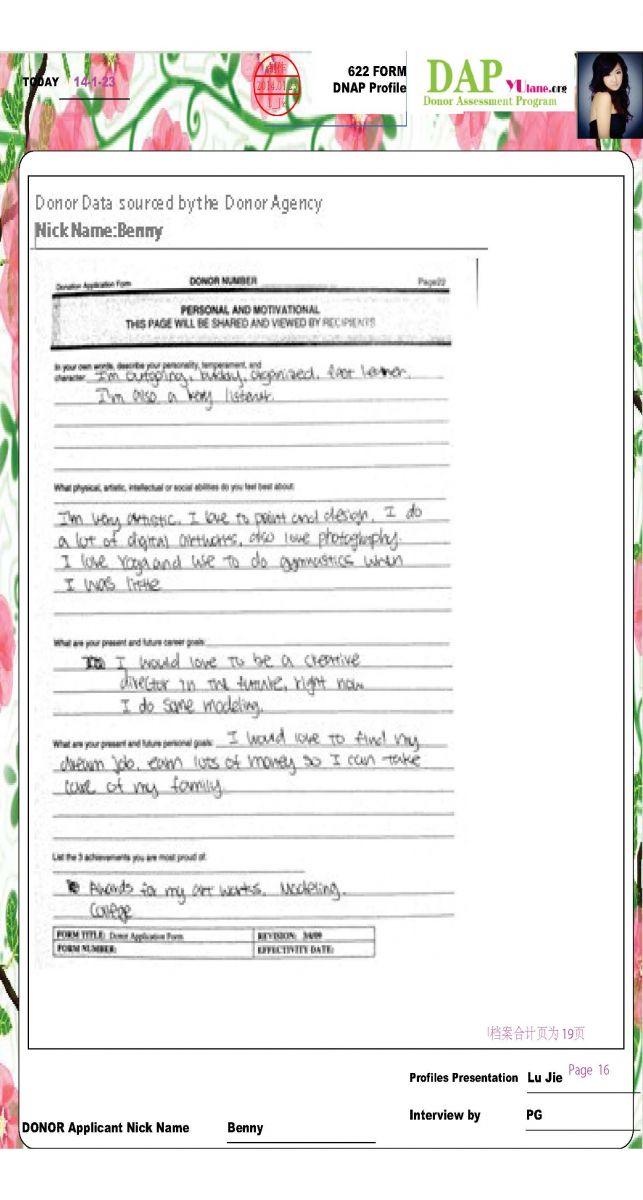 TODAY 14-1-23
2014.01.23
622 FORM
DNAP Profile
DAP YUlane.org
Donor Assessment Program
Donor Data sourced by the Donor Agency
Nick Name:Benny
Donation Application Form DONOR NUMBER Page22
PERSONAL AND MOTIVATIONAL
THIS PAGE WILL BE SHARED AND VIEWED BY RECIPIENTS
In your own words, describe your personality, temperament, and
character: I'm outgoing, bubbly, organized, fast learner.
I'm also a very listener.
What physical, artistic, intellectual or social abilities do you feel best about:
I'm very artistic. I love to paint and design. I do
a lot of digital artworks, also love photography.
I love Yoga and use to do gymnastics when
I was little
What are your present and future career goals:
I would love to be a creative
director in the future, right now
I do some modeling.
What are your present and future personal goals: I would love to find my
dream job, earn lots of money so I can take
care of my family.
List the 3 achievements you are most proud of:
Awards for my art works. Modeling.
College
FORM TITLE: Donor Application Form REVISION: 3/4/09
FORM NUMBER: EFFECTIVITY DATE:
档案合计页为19页
Profiles Presentation Lu Jie Page 16
Interview by PG
DONOR Applicant Nick Name Benny